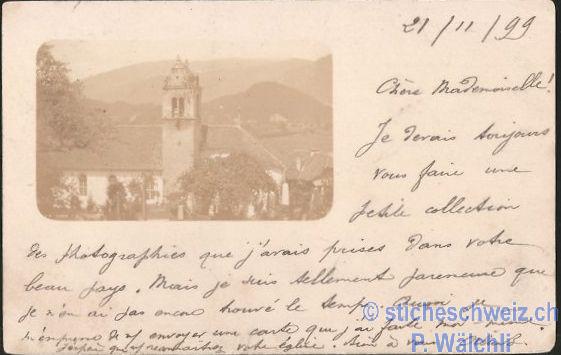 21/11/99
Chère Mademoiselle!
Je devais toujours
vous faire une
petite collection
des photographies que j'avais prises dans votre
beau pays. Mais je suis tellement paresseuse que
je n'en ai pas encore trouvé le temps.
envoyer une carte que j'ai faite moi même.
votre église.
© sticheschweiz.ch
P. Wälchli